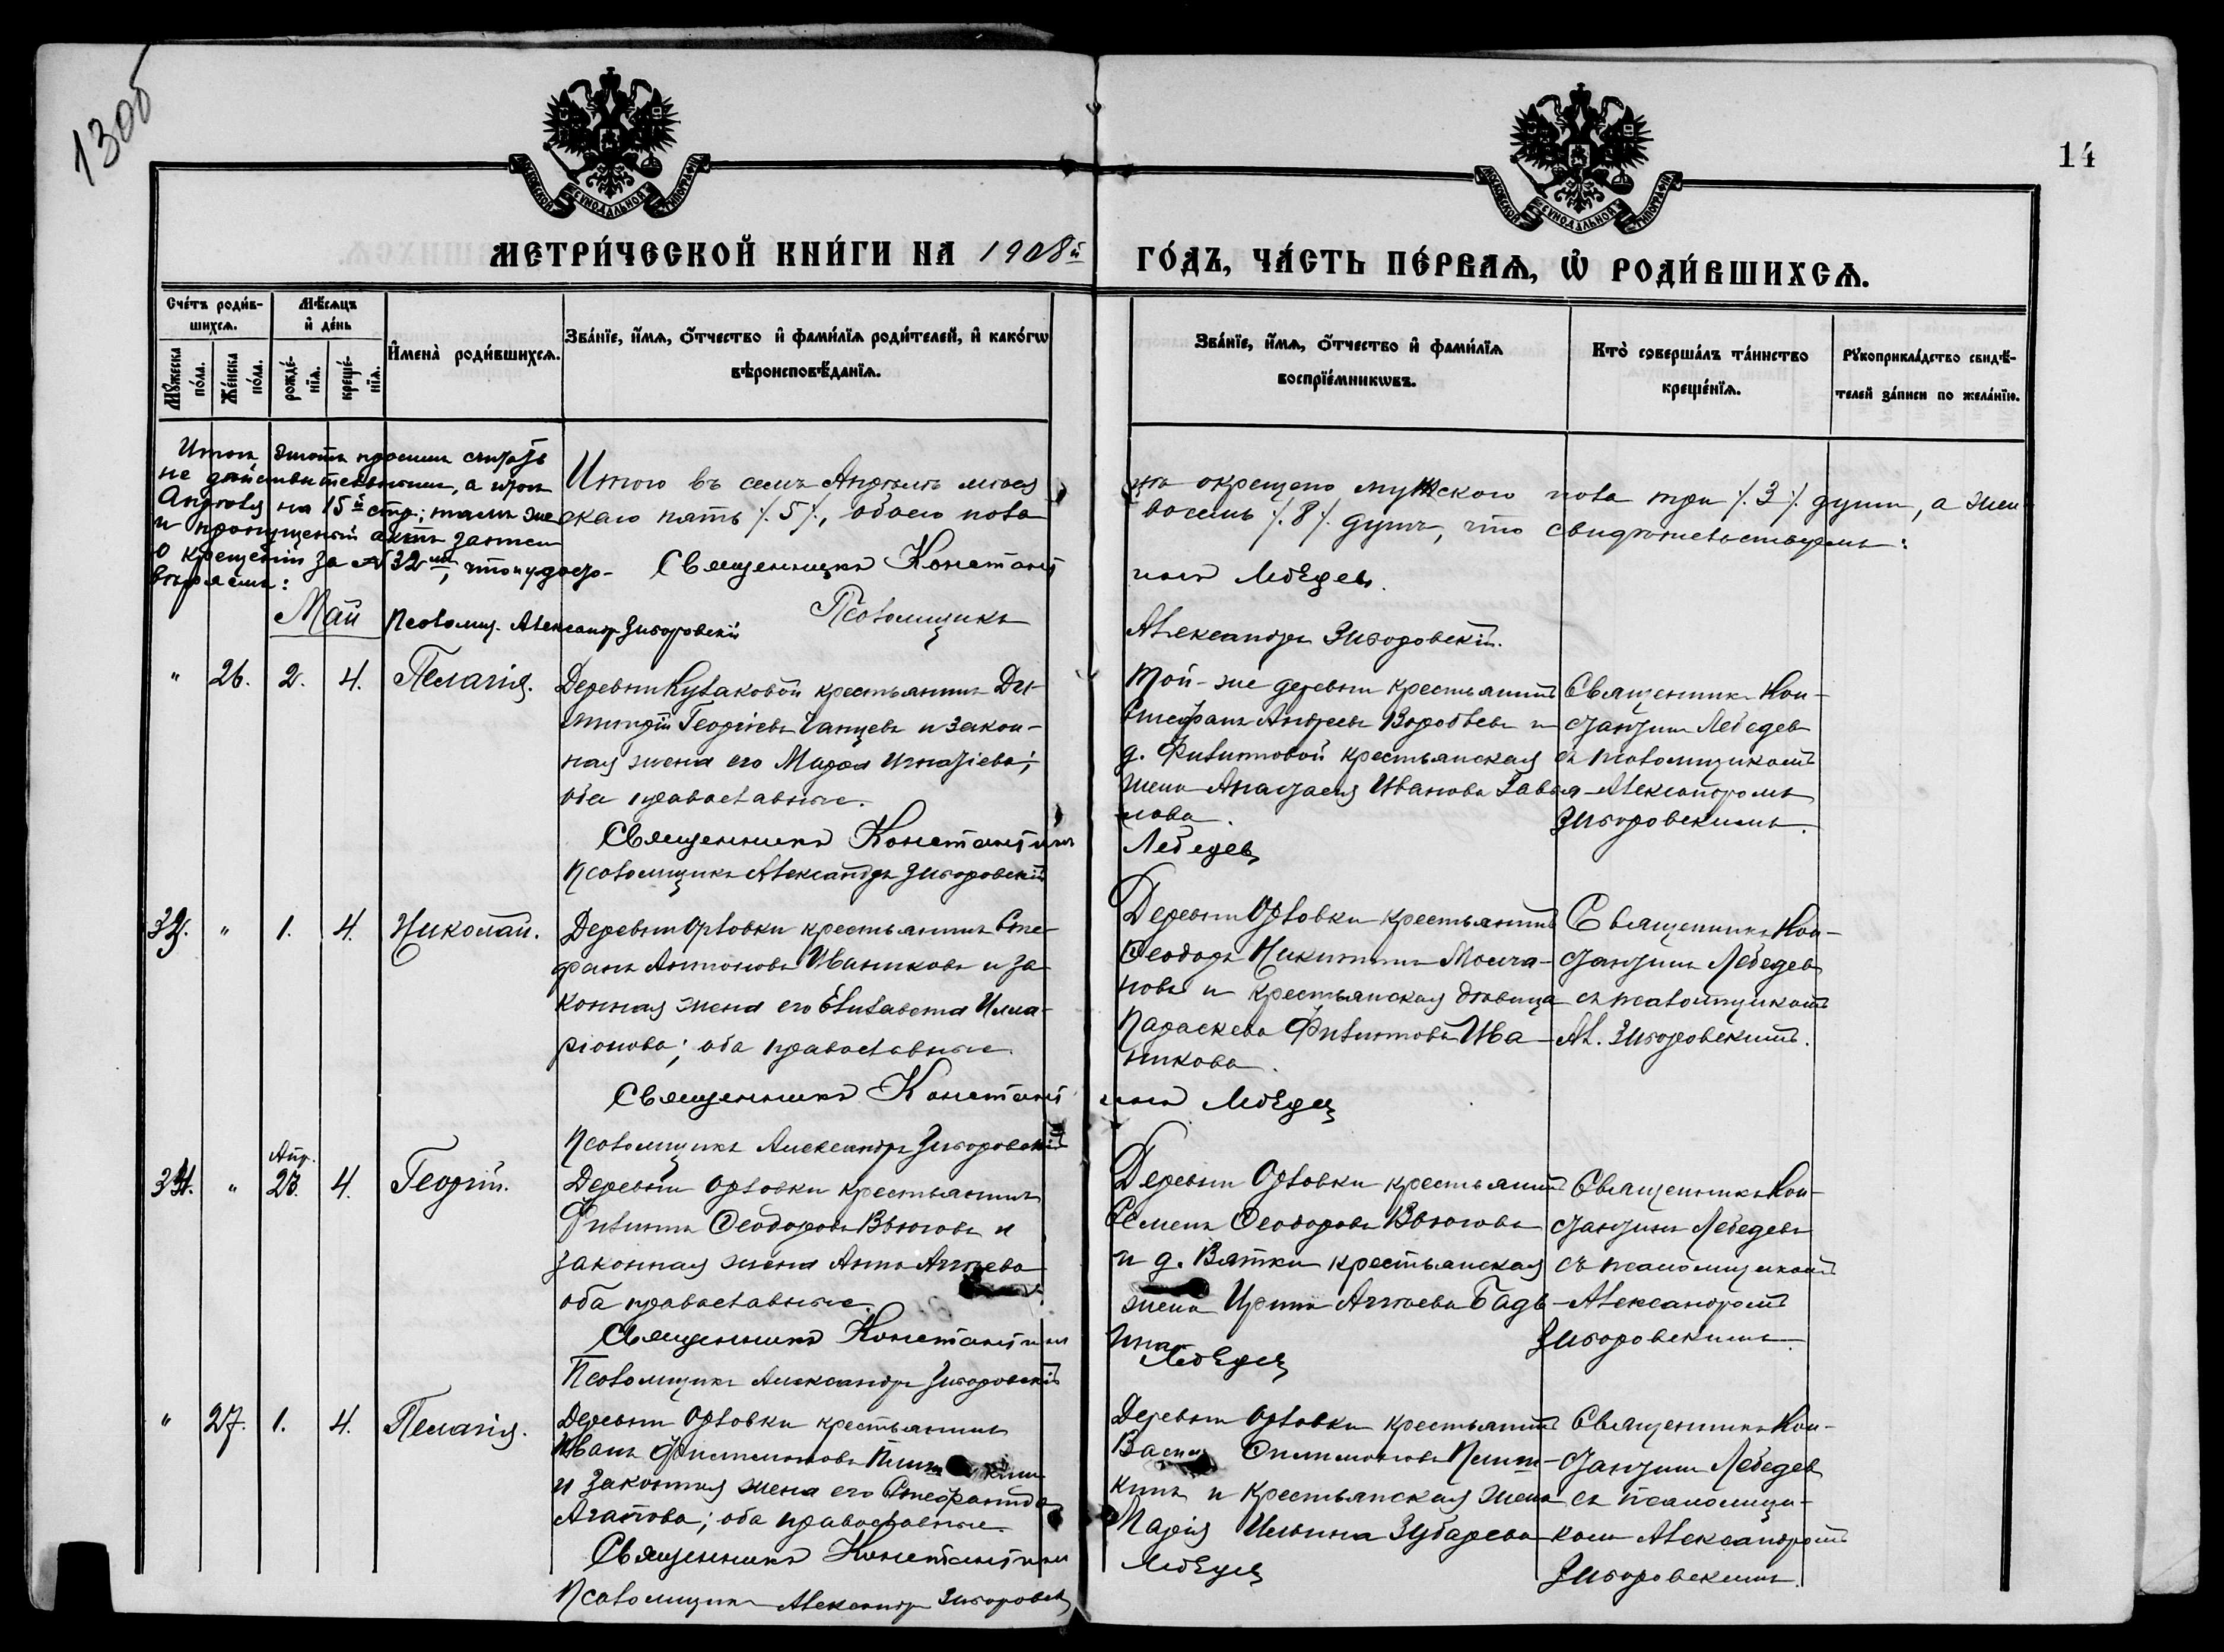 130об
14
МОСКОВСКОЙ СѴНОДАЛЬНОЙ ТИПОГРАФІИ
МОСКОВСКОЙ СѴНОДАЛЬНОЙ ТИПОГРАФІИ
МЕТРИ́ЧЕСКОЙ КНИ́ГИ НА 1908й
ГО́ДЪ, ЧА́СТЬ ПЕ́РВАѦ, Ѡ҆ РОДИ́ВШИХСѦ.
Сче́тъ роди́в-
шихсѧ.
Мꙋ́жеска
по́ла.
Же́нска
по́ла.
Мѣ́сѧцъ
и҆ де́нь
рожде́-
нїѧ.
креще́-
нїѧ.
И҆мена̀ роди́вшихсѧ.
Зва́нїе, и҆́мѧ, ѻ҆́тчество и҆ фами́лїѧ роди́телей, и҆ како́гѡ
вѣроисповѣ́данїѧ.
Зва́нїе, и҆́мѧ, ѻ҆́тчество и҆ фами́лїѧ
воспрїе́мникѡвъ.
Кто̀ соверша́лъ та́инство
креще́нїѧ.
Рꙋкоприкла́дство свидѣ́-
телей за́писи по жела́нїю.
Итогъ этотъ просимъ считать
не действительнымъ, а итогъ
Апрѣля на 15й стр; тамъ же
и пропущенный актъ записи
о крещеніи за № 32мъ, что и удосто-
вѣряемъ:
Псаломщ. Александръ Зигоровскій
Итого въ семъ Апрѣлѣ мѣся
скаго пять /.5/., обоего пола
Священникъ Констант
Псаломщикъ
цѣ окрещено мужскаго пола три /.3/. души, а жен
восемь /.8/. душъ, что свидѣтельствуемъ:
инъ Лебедевъ.
Александръ Зигоровскій.
Май
" 26. 2. 4. Пелагія.
Деревни Кулаковой крестьянинъ Ди-
митрій Георгіевъ Ганцевъ и закон-
ная жена его Марѳа Игнатіева;
оба православные.
Священникъ Константинъ
Псаломщикъ Александръ Зигоровскій
Той-же деревни крестьянинъ
Стефанъ Андреевъ Воробьевъ и
д. Филиповой крестьянская
жена Анастасія Иванова Завья-
лова.
Лебедевъ
Священникъ Кон-
стантинъ Лебедевъ
съ псаломщикомъ
Александромъ
Зигоровскимъ.
33. " 1. 4. Николай.
Деревни Орловки крестьянинъ Сте-
фанъ Антоновъ Иванниковъ и за-
конная жена его Елисавета Илла-
ріонова; оба православные.
Священникъ Констант
Псаломщикъ Александръ Зигоровскій
Деревни Орловки крестьянинъ
Ѳеодоръ Никитинъ Молча-
новъ и крестьянская дѣвица
Параскева Филиппова Ива-
никова.
инъ Лебедевъ
Священникъ Кон-
стантинъ Лебедевъ
съ псаломщикомъ
Ал. Зигоровскимъ.
34. " Апр. 23. 4. Георгій.
Деревни Орловки крестьянинъ
Филиппъ Ѳеодоровъ Вьюговъ и
законная жена Анна Аггѣева
оба православные.
Священникъ Константинъ
Псаломщикъ Александръ Зигоровскій
Деревни Орловки крестьянинъ
Семенъ Ѳеодоровъ Вьюговъ
и д. Вятки крестьянская
жена Ирина Аггѣева Бадь-
ина
Лебедевъ
Священникъ Кон-
стантинъ Лебедевъ
съ псаломщикомъ
Александромъ
Зигоровскимъ.
" 27. 1. 4. Пелагія.
Деревни Орловки крестьянинъ
Иванъ
и законная жена его Стефанида
Агапова; оба православные.
Священникъ Константинъ
Псаломщикъ Александръ Зигоровск
Деревни Орловки крестьянинъ
кинъ и крестьянская жена
Марія Ильина Зубарева
Лебедевъ
Священникъ Кон-
стантинъ Лебедевъ
съ псаломщи-
комъ Александромъ
Зигоровскимъ.